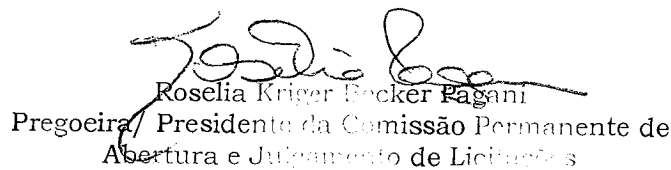 Roselia Kriger Becker Pagani
Pregoeira/ Presidente da Comissão Permanente de
Abertura e Julgamento de Licitações